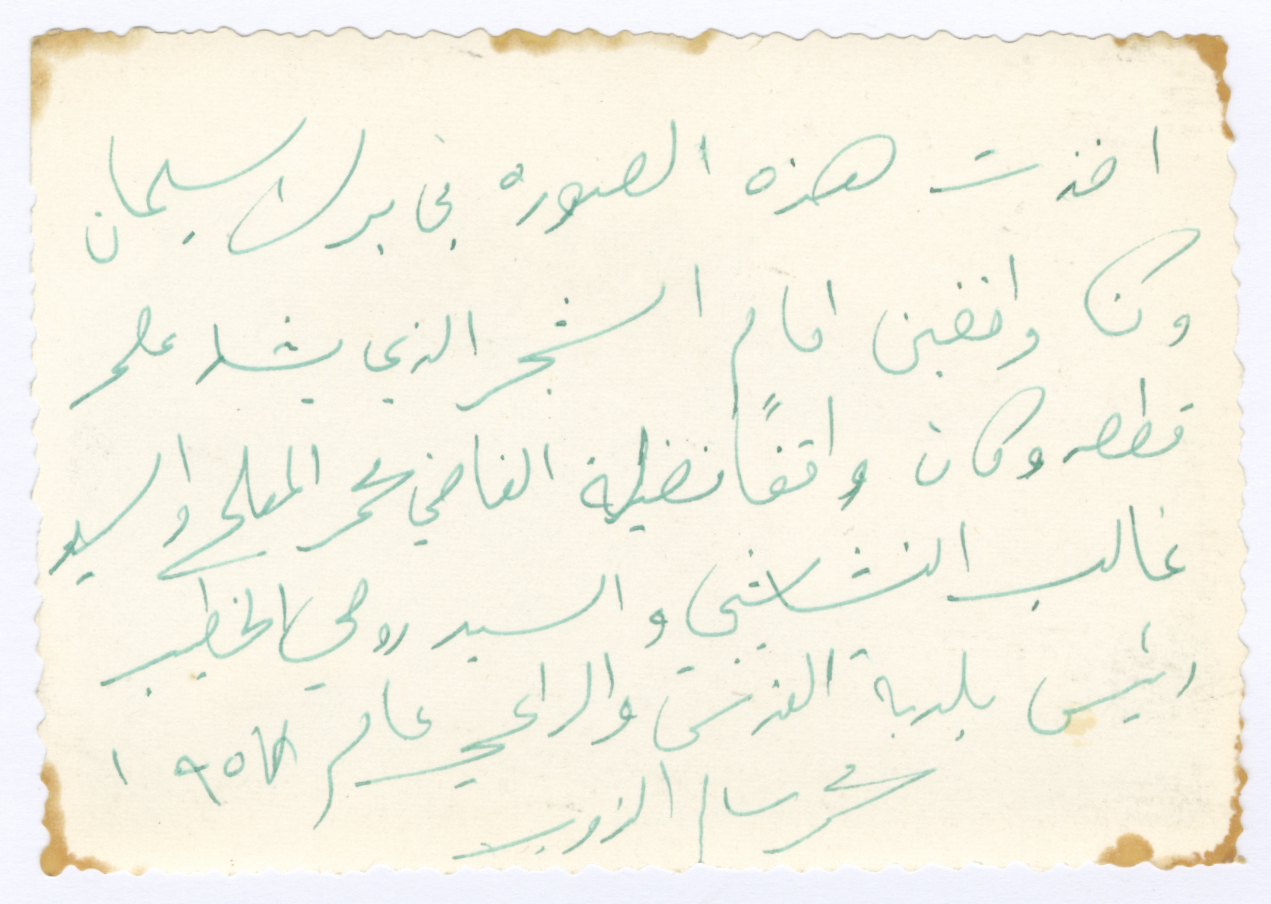 اخذت هذه الصوره في برك سليمان
وكنا واقفين امام الشجر الذي يشار على
قطعه وكان واقفاً فضيلة القاضي محمد المعلى والسيد
غالب النشاشيبي والسيد روحي الخطيب
رئيس بلدية القدس والراعي عام ١٩٥٧
محمد سالم الذويب